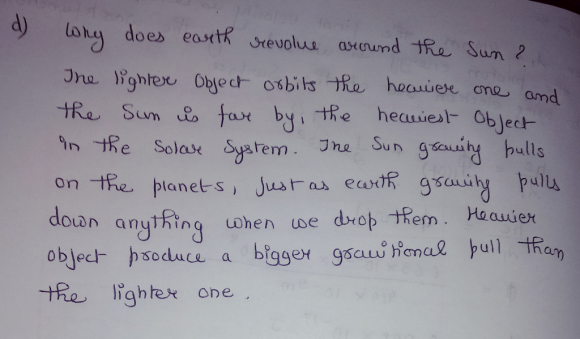 d) Why does earth revolve around the Sun ?
The lighter Object orbits the heavier one and
the Sun is far by, the heaviest Object
in the Solar System. The Sun gravity pulls
on the planets, Just as earth gravity pulls
down anything when we drop them. Heavier
object produce a bigger gravitional pull than
the lighter one.